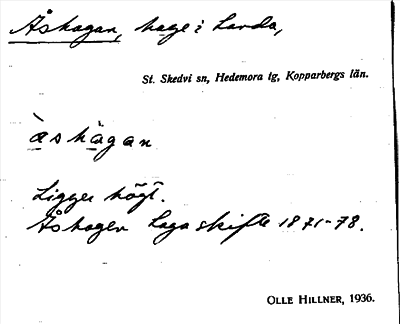 Åshagan, hage i Landa,
St. Skedvi sn, Hedemora tg, Kopparbergs län.
àshàgan
Ligger högt.
Åshagen Laga skifte 1871-78.
OLLE HILLNER, 1936.